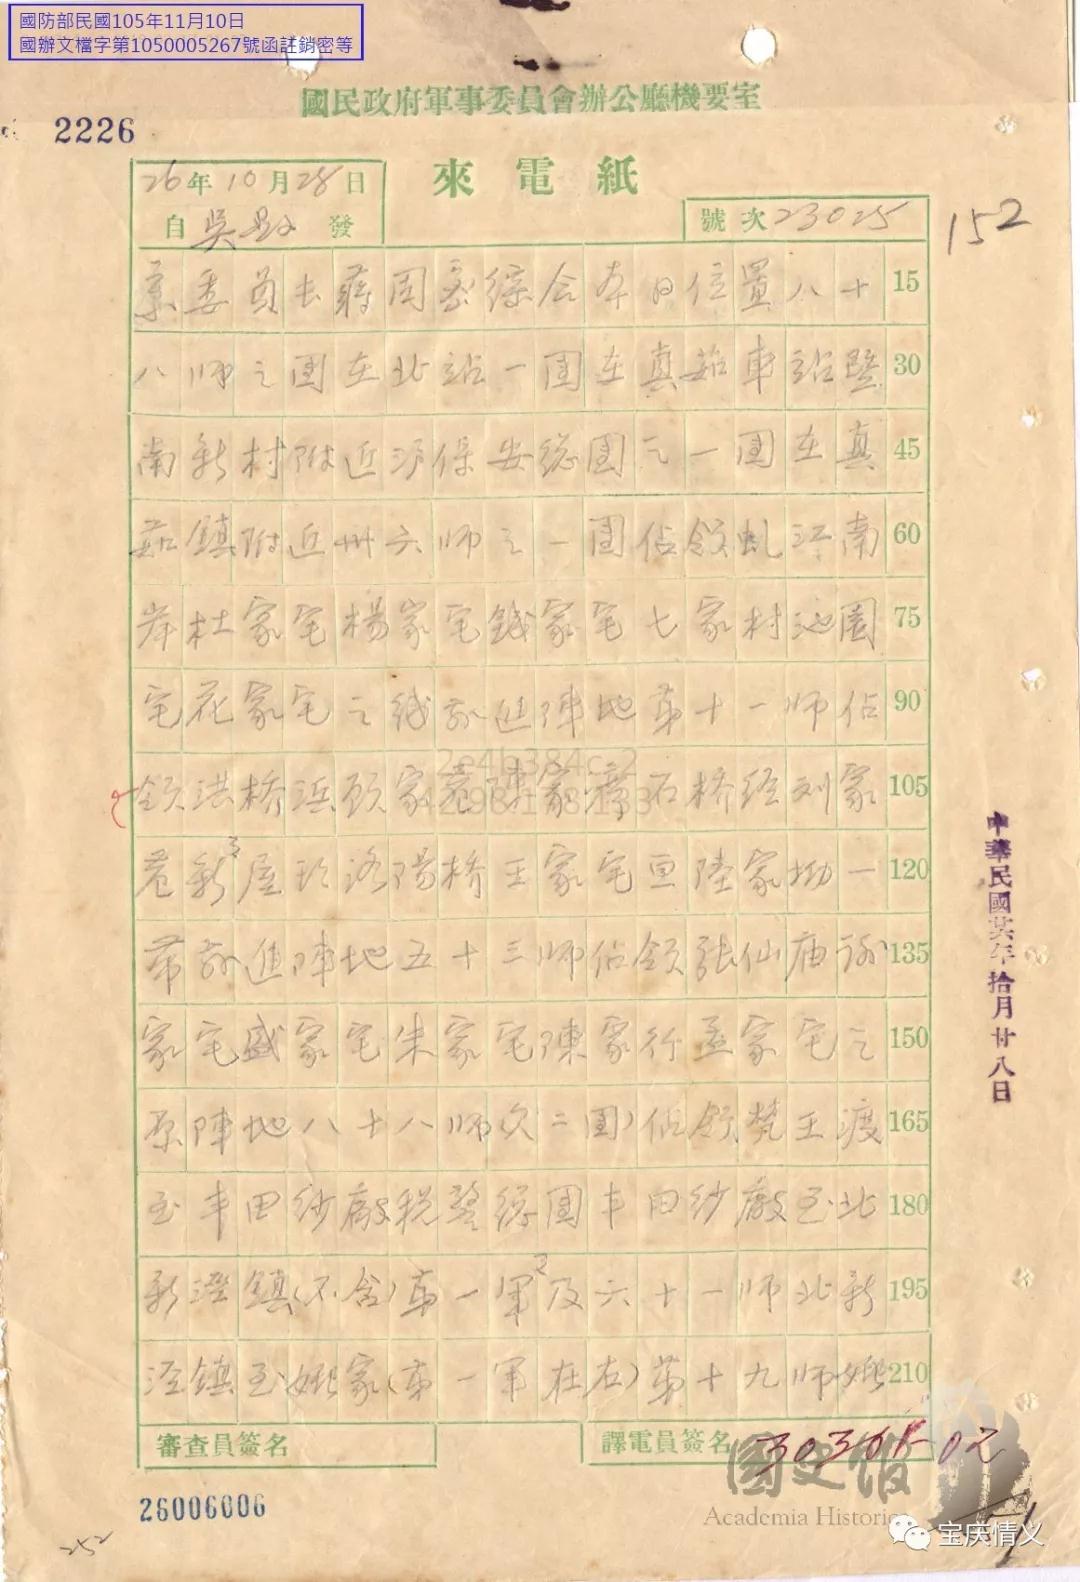 國防部民國105年11月10日
國辦文檔字第1050005267號函註銷密等
國民政府軍事委員會辦公廳機要室
2226
來電紙
26年10月28日
自吳 發
號次23025
152
委員長蔣 綜合本日位置八十 15
八師之團在北站一團在真茹車站暨 30
南新村附近 保安總團之一團在真 45
茹鎮附近卅六師之一團佔領虬江南 60
岸杜家宅楊家宅錢家宅七家村池園 75
宅花家宅之綫 進陣地第十一師佔 90
領洪橋浜 家巷陳家 石橋經刘家 105
巷新 屋 洛陽橋王家宅亘陸家 一 120
帶 進陣地五十三師佔領張仙庙 135
家宅盛家宅朱家宅陳家行孟家宅之 150
原陣地八十八師(欠二團)佔領梵王渡 165
至丰田紗廠税警總團丰田紗廠至北 180
新涇鎮(不含)第一軍 及六十一師北新 195
涇鎮至姚家(第一軍在右)第十九師姚 210
審查員簽名
譯電員簽名
26006006
252
中華民國廿六年拾月廿八日
國史館
Academia Historica
宝庆情义